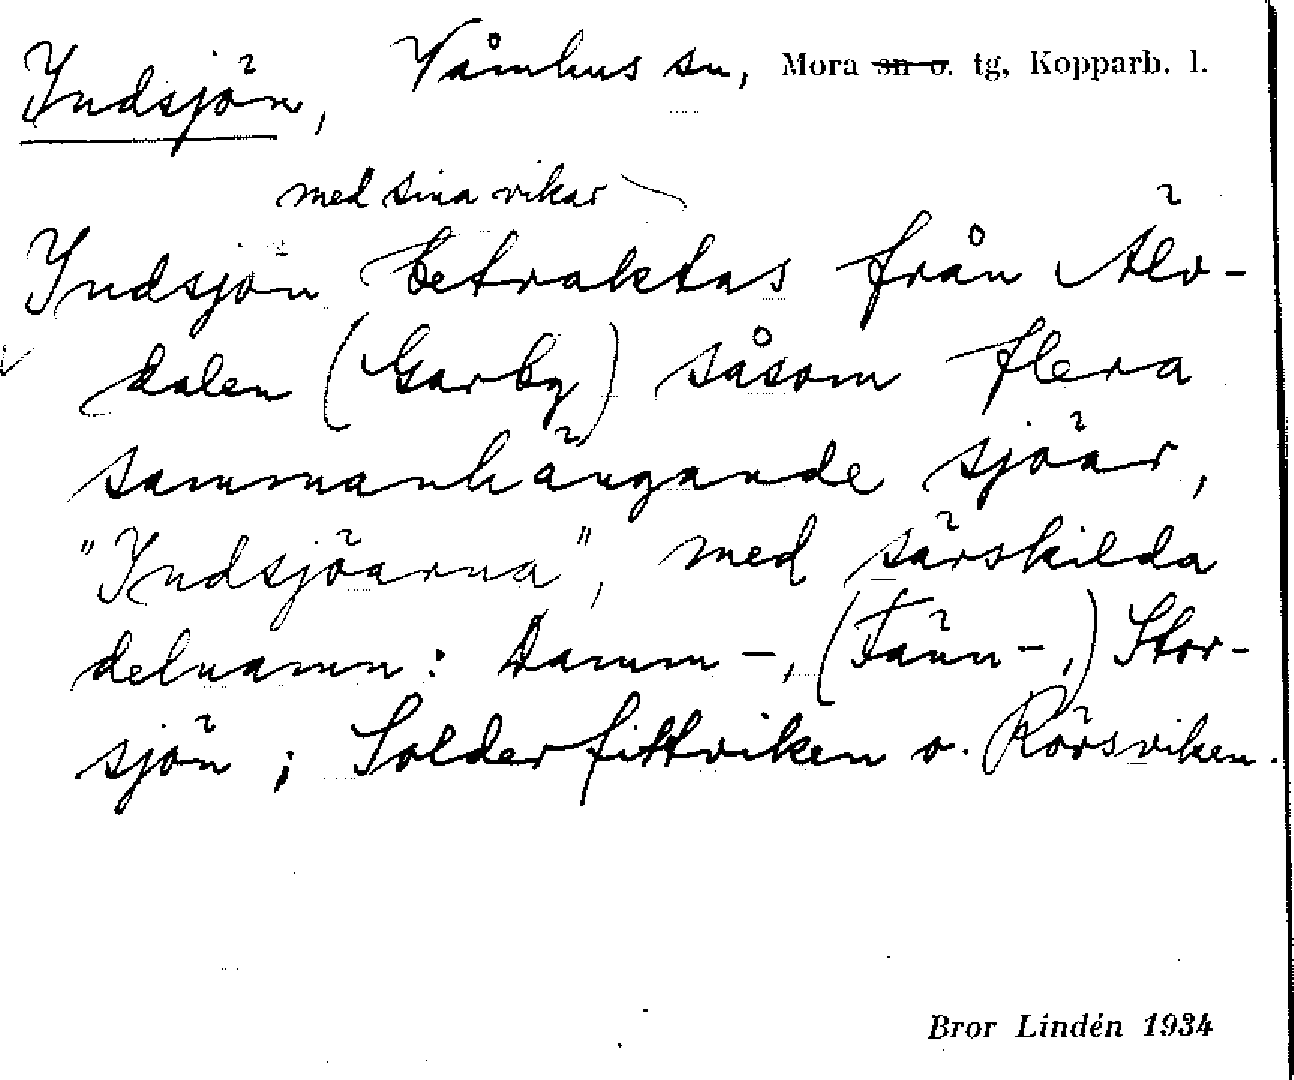 Indsjön, Våmhus sn, Mora sn o. tg, Kopparb. l.
med sina vikar
Indsjön betraktas från Älv-
dalen (Garby) såsom flera
sammanhängande sjöar,
"Indsjöarna", med särskilda
delnamn: Damm-, (Tänn-,) Stor-
sjön; Solderfittviken o. Rörsviken.
Bror Lindén 1934